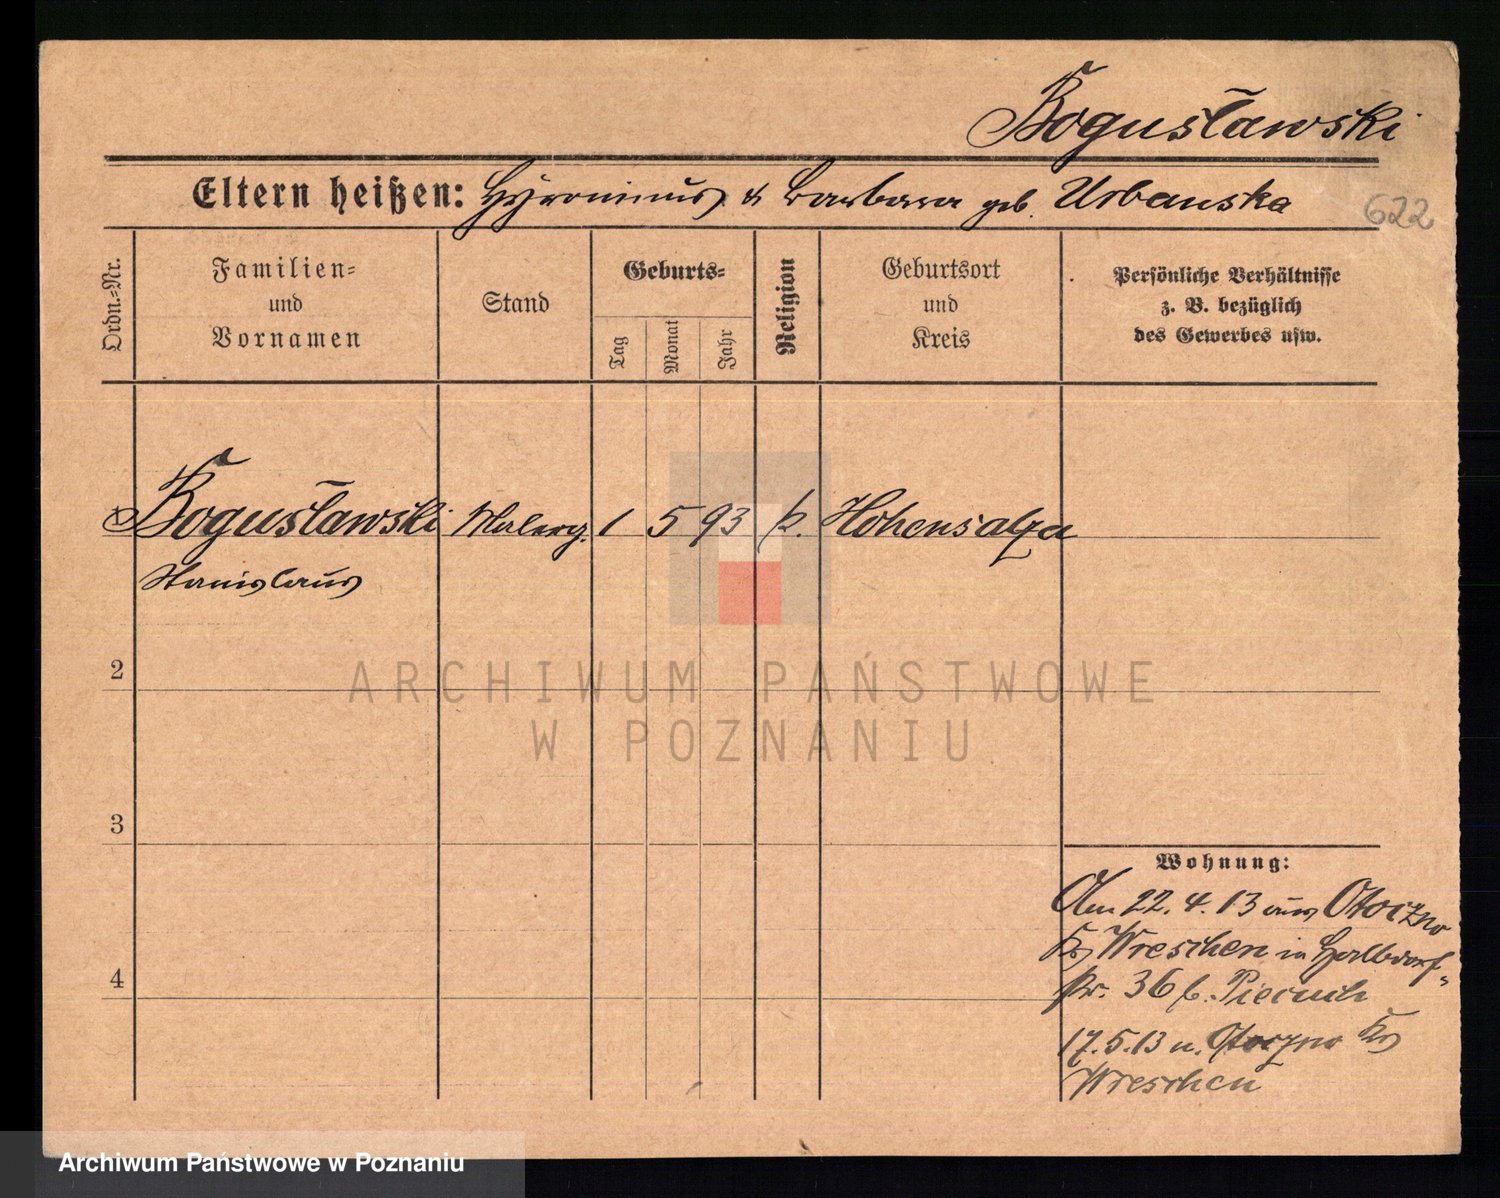 Bogusławski
Eltern heißen: Hyronimus & Barbara geb. Urbanska
622
Ordn.=Nr.
Familien=
und
Vornamen
Stand
Geburts=
Tag
Monat
Jahr
Religion
Geburtsort
und
Kreis
Persönliche Verhältnisse
z. B. bezüglich
des Gewerbes usw.
Bogusławski Malerg. 1 5 93 k. Hohensalza
Stanislaus
2
3
4
Wohnung:
Am 22.4.13 aus Otoczno
Krs Wreschen in Halbdorf-
str. 36 b. Pieciuch
17.5.13 n. Otoczno Krs
Wreschen
ARCHIWUM PAŃSTWOWE
W POZNANIU
Archiwum Państwowe w Poznaniu